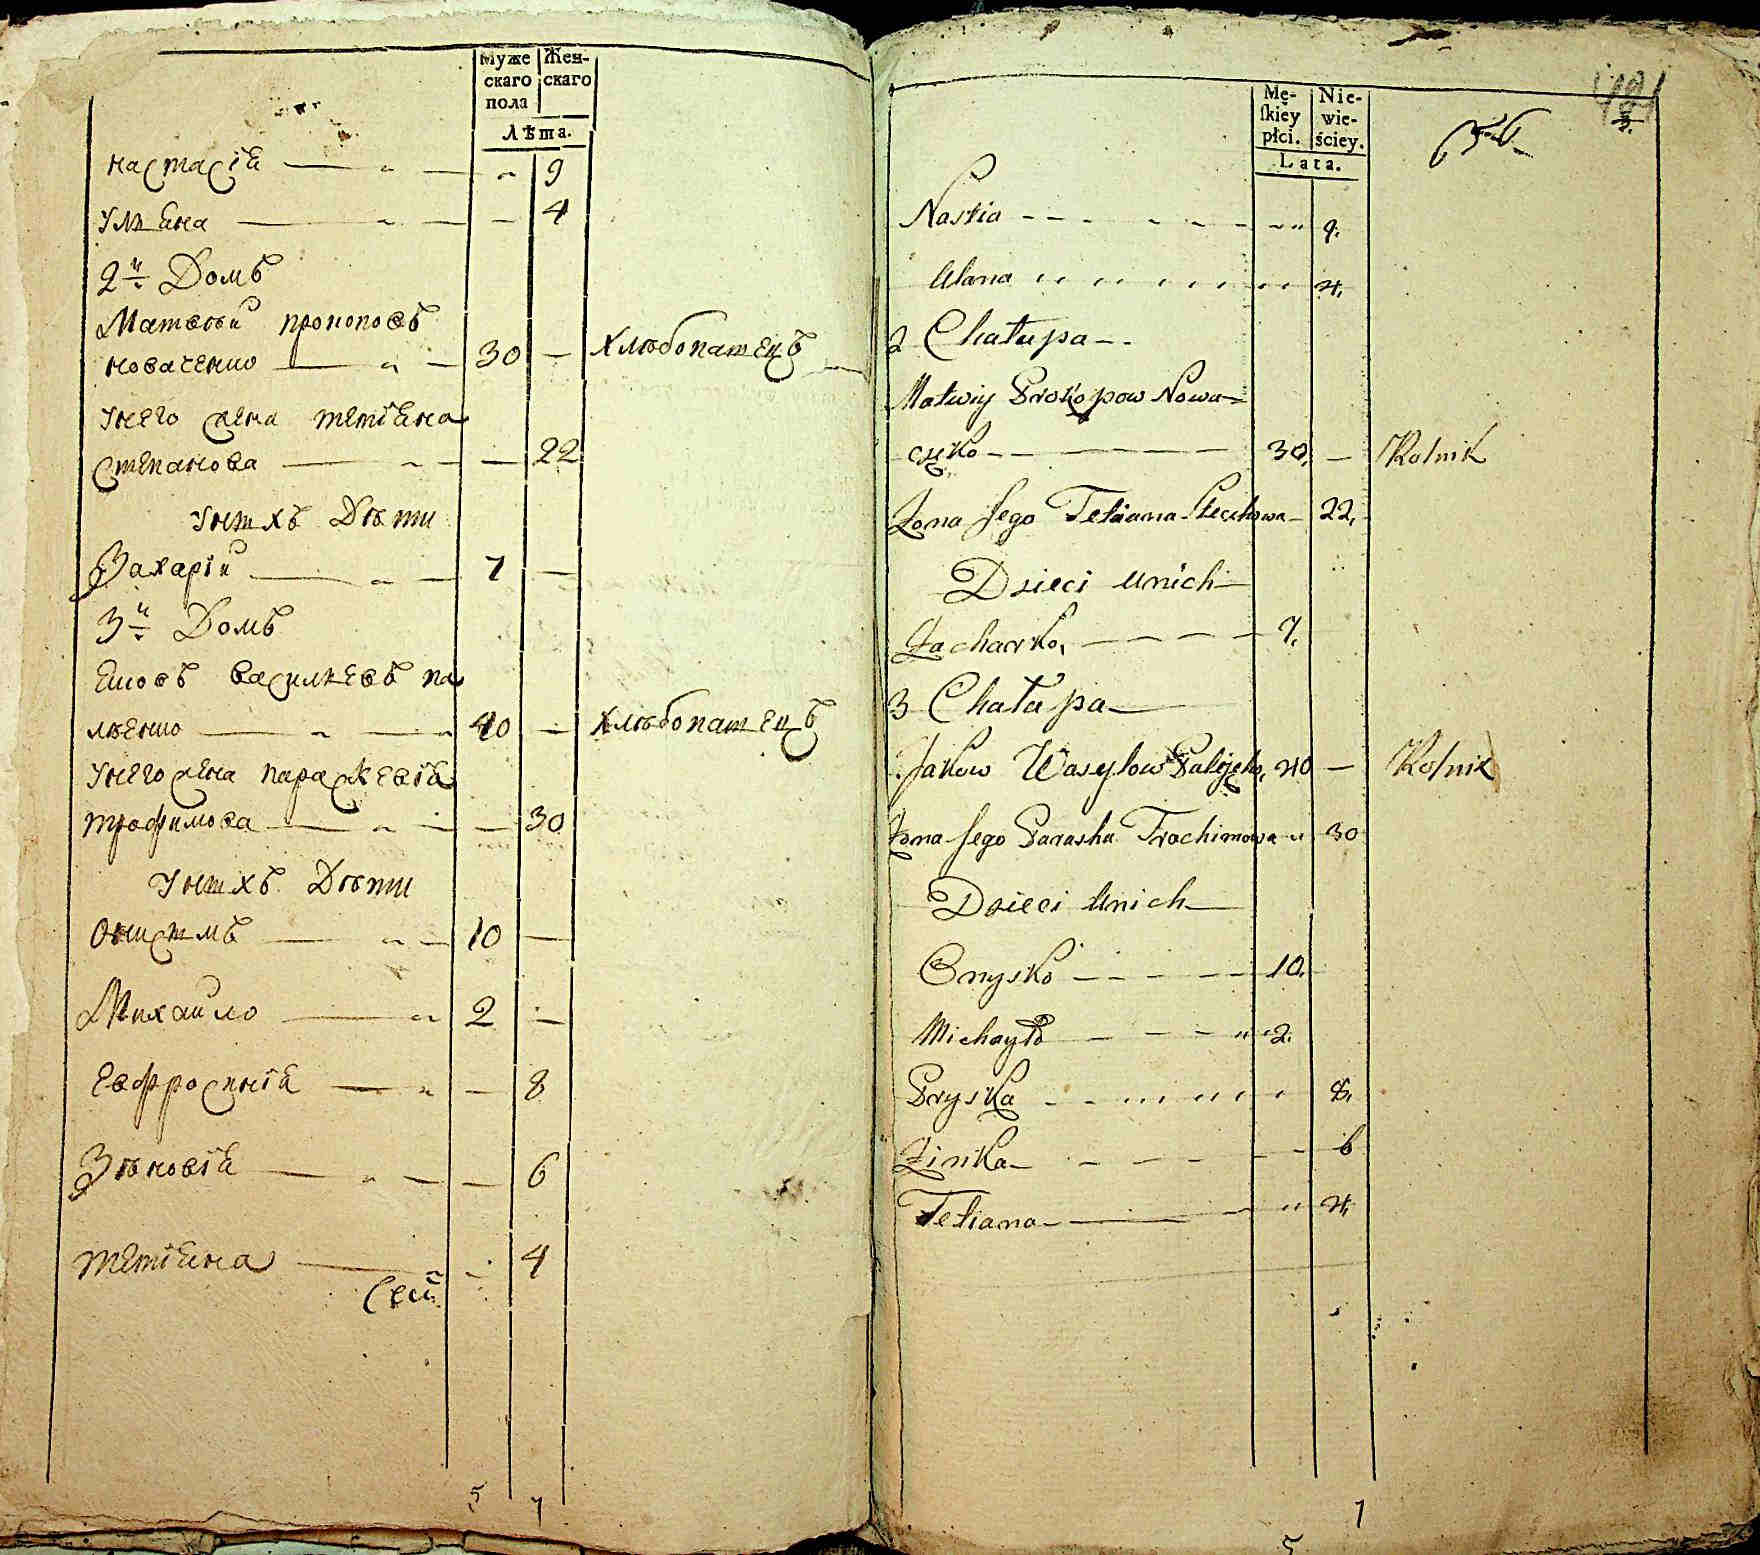 Муже
скаго
пола
Жен-
скаго
Лѣта.
настасіѧ — „ — „ 9
улиѧна — „ — — 4
2й Домъ
Матвѣй прокоповъ
новаченко — „ — 30 — хлѣбопашецъ
унего жена тетіѧна
степанова — „ — — 22
унихъ Дѣти
Захарій — „ — 7 —
3й Домъ
ѧковъ василіевъ па
лѣенко — „ — „ 40 — хлѣбопашецъ
унего жена параскевіѧ
трофимова — „ — — 30
унихъ Дѣти
онисимъ — „ — 10 —
Михайло — „ 2 —
евфросиніѧ — „ — 8
Зѣновіѧ — „ — — 6
тетіѧна — „ — 4
5 7
Mę-
ſkiey
płci.
Nie-
wie-
ściey.
Lata.
Nastia - - - - - - - „ 9.
Ulana „ „ „ „ „ „ „ 4.
2 Chałupa - -
Matwiy Prokopow Nowa-
częko - - — — — 30. — Rolnik
Żona Jego Tetiana Stechowa - 22.
Dzieci unich
Zacharko. — — — 7.
3 Chałupa —
Jakow Wasylow Palijęko. 40 — Rolnik
Żona Jego Paraska Trochimowa „ 30
Dzieci Unich
Onysko - - - - 10.
Michayło — - - „ 2.
Pryska - - „ „ „ „ „ 8.
Zinka — - - - - 6
Tetiana — — - „ 4.
7
5